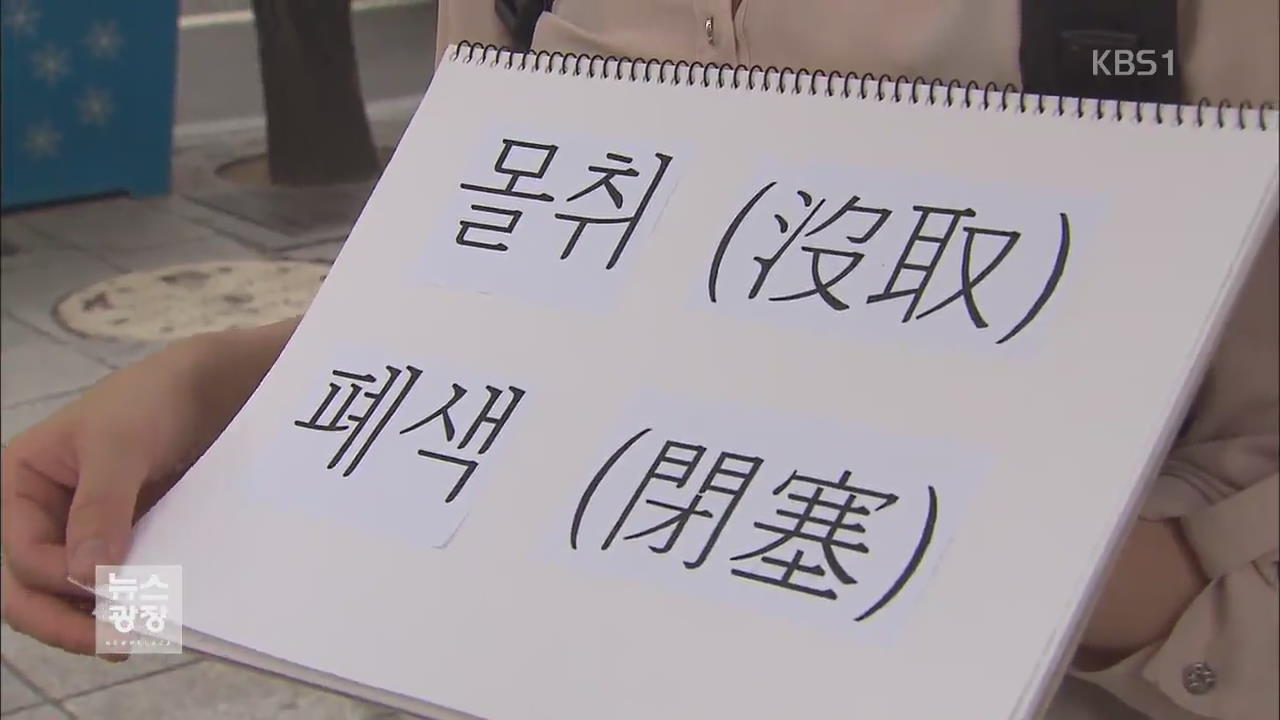 KBS1
몰취 (沒取)
폐색 (閉塞)
뉴스
광장
NEWSPLAZA